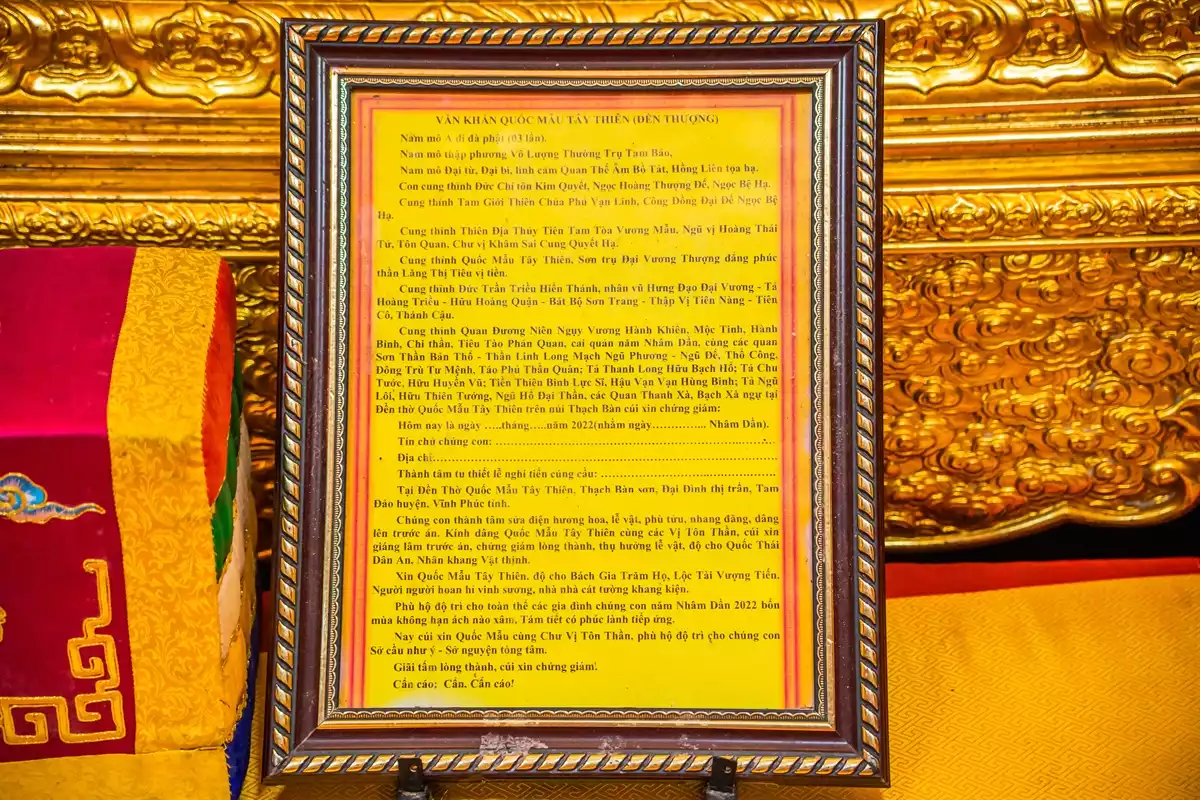 VĂN KHẤN QUỐC MẪU TÂY THIÊN (ĐỀN THƯỢNG)
Nam mô A di đà phật (03 lần).
Nam mô thập phương Vô Lượng Thường Trụ Tam Bảo,
Nam mô Đại từ, Đại bi, linh cảm Quan Thế Âm Bồ Tát, Hồng Liên tọa hạ.
Con cung thỉnh Đức Chí tôn Kim Quyết, Ngọc Hoàng Thượng Đế, Ngọc Bệ Hạ.
Cung thỉnh Tam Giới Thiên Chúa Phủ Vạn Linh, Công Đồng Đại Đế Ngọc Bệ
Hạ.
Cung thỉnh Thiên Địa Thủy Tiên Tam Tòa Vương Mẫu, Ngũ vị Hoàng Thái
Tử, Tôn Quan, Chư vị Khâm Sai Cung Quyết Hạ.
Cung thỉnh Quốc Mẫu Tây Thiên, Sơn trụ Đại Vương Thượng đẳng phúc
thần Lăng Thị Tiêu vị tiền.
Cung thỉnh Đức Trần Triều Hiển Thánh, nhân vũ Hưng Đạo Đại Vương - Tả
Hoàng Triều - Hữu Hoàng Quận - Bát Bộ Sơn Trang - Thập Vị Tiên Nàng - Tiên
Cô, Thánh Cậu.
Cung thỉnh Quan Đương Niên Ngụy Vương Hành Khiển, Mộc Tinh, Hành
Binh, Chi thần, Tiêu Tào Phán Quan, cai quản năm Nhâm Dần, cùng các quan
Sơn Thần Bản Thổ - Thần Linh Long Mạch Ngũ Phương - Ngũ Đế, Thổ Công,
Đông Trù Tư Mệnh, Táo Phủ Thần Quân; Tả Thanh Long Hữu Bạch Hổ; Tả Chu
Tước, Hữu Huyền Vũ; Tiền Thiên Binh Lực Sĩ, Hậu Vạn Vạn Hùng Binh; Tả Ngũ
Lôi, Hữu Thiên Tướng, Ngũ Hổ Đại Thần, các Quan Thanh Xà, Bạch Xà ngự tại
Đền thờ Quốc Mẫu Tây Thiên trên núi Thạch Bàn cúi xin chứng giám:
Hôm nay là ngày .....tháng.....năm 2022(nhằm ngày.............. Nhâm Dần).
Tín chủ chúng con: ....................................................................
Địa chỉ:....................................................................
Thành tâm tu thiết lễ nghi tiến cúng cầu: ..............................
Tại Đền Thờ Quốc Mẫu Tây Thiên, Thạch Bàn sơn, Đại Đình thị trấn, Tam
Đảo huyện, Vĩnh Phúc tỉnh.
Chúng con thành tâm sửa điện hương hoa, lễ vật, phù tửu, nhang đăng, dâng
lên trước án. Kính dâng Quốc Mẫu Tây Thiên cùng các Vị Tôn Thần, cúi xin
giáng lâm trước án, chứng giám lòng thành, thụ hưởng lễ vật, độ cho Quốc Thái
Dân An, Nhân khang Vật thịnh.
Xin Quốc Mẫu Tây Thiên, độ cho Bách Gia Trăm Họ, Lộc Tài Vượng Tiến.
Người người hoan hỉ vinh sương, nhà nhà cát tường khang kiện.
Phù hộ độ trì cho toàn thể các gia đình chúng con năm Nhâm Dần 2022 bốn
mùa không hạn ách nào xâm, Tám tiết có phúc lành tiếp ứng.
Nay cúi xin Quốc Mẫu cùng Chư Vị Tôn Thần, phù hộ độ trì cho chúng con
Sở cầu như ý - Sở nguyện tòng tâm.
Giãi tấm lòng thành, cúi xin chứng giám!
Cẩn cáo; Cẩn. Cẩn cáo!